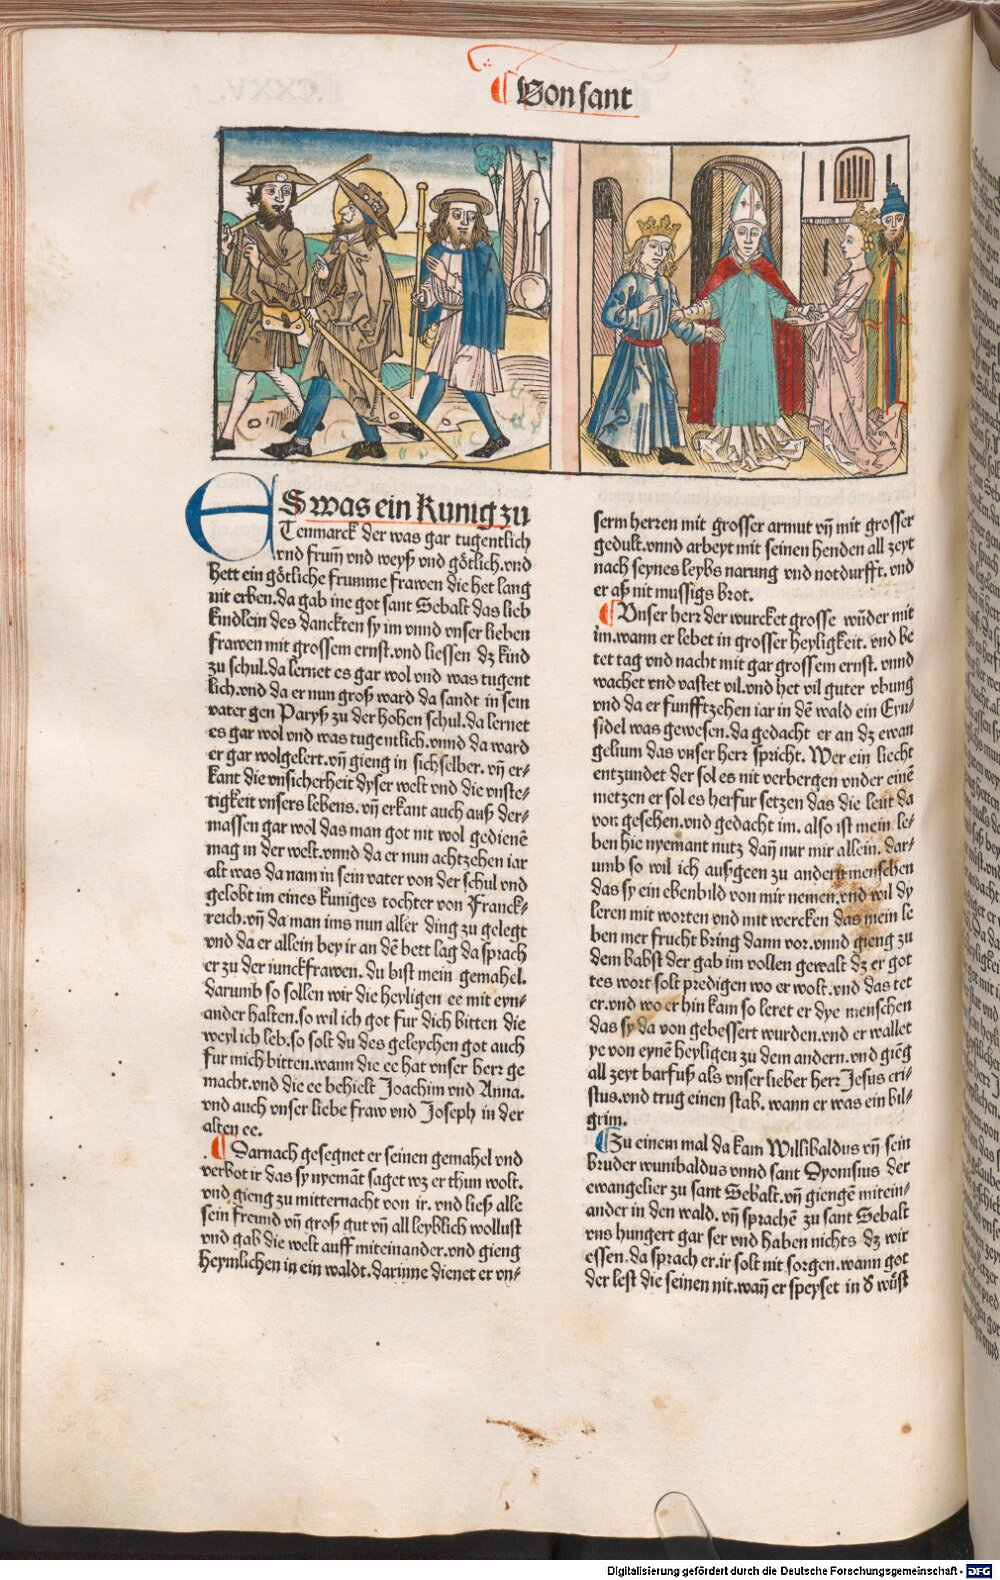 Von sant
ES was ein Kunig zu
Tenmarck der was gar tugentlich
vnd frum̄ vnd weyß vnd götlich. vnd
hett ein götliche frumme frawen die het lang
nit erben. da gab ine got sant Sebalt das lieb
kindlein des danckten sy im vnnd vnser lieben
frawen mit grossem ernst. vnd liessen dz kind
zu schul. da lernet es gar wol vnd was tugent
lich. vnd da er nun groß ward da sandt in sein
vater gen Paryß zu der hohen schul. da lernet
es gar wol vnd was tugentlich. vnnd da ward
er gar wolgelert. vn̄ gieng in sichselber. vn̄ er-
kant die vnsicherheit dyser welt vnd die vnste-
tigkeit vnsers lebens. vn̄ erkant auch auß der-
massen gar wol das man got nit wol gedienē
mag in der welt. vnnd da er nun achtzehen iar
alt was da nam in sein vater von der schul vnd
gelobt im eines kuniges tochter von Franck-
reich. vn̄ da man ims nun aller ding zu gelegt
vnd da er allein bey ir an dē bett lag da sprach
er zu der iunckfrawen. du bist mein gemahel.
darumb so sollen wir die heyligen ee mit eyn-
ander halten. so wil ich got fur dich bitten die
weyl ich leb. so solt du des geleychen got auch
fur mich bitten. wann die ee hat vnser herr ge
macht. vnd die ee behielt Joachim vnd Anna.
vnd auch vnser liebe fraw vnd Joseph in der
alten ee.
Darnach gesegnet er seinen gemahel vnd
verbot ir das sy nyemāt saget wz er thun wolt.
vnd gieng zu mitternacht von ir. vnd ließ alle
sein freund vn̄ groß gut vn̄ all leyblich wollust
vnd gab die welt auff miteinander. vnd gieng
heymlichen in ein waldt. darinne dienet er vn-
serm herren mit grosser armut vn̄ mit grosser
gedult. vnnd arbeyt mit seinen henden all zeyt
nach seynes leybs narung vnd notdurfft. vnd
er aß nit mussigs brot.
Vnser herr der wurcket grosse wūder mit
im. wann er lebet in grosser heyligkeit. vnd be
tet tag vnd nacht mit gar grossem ernst. vnnd
wachet vnd vastet vil. vnd het vil guter vbung
vnd da er funfftzehen iar in dē wald ein Eyn-
sidel was gewesen. da gedacht er an dz ewan
gelium das vnser herr spricht. Wer ein liecht
entzundet der sol es nit verbergen vnder einē
metzen er sol es herfur setzen das die leut da
von gesehen. vnd gedacht im. also ist mein le-
ben hie nyemant nutz dan̄ nur mir allein. dar-
umb so wil ich außgeen zu andern menschen
das sy ein ebenbild von mir nemen. vnd wil dy
leren mit worten vnd mit wercken das mein le
ben mer frucht bring dann vor. vnnd gieng zu
dem babst der gab im vollen gewalt dz er got
tes wort solt predigen wo er wolt. vnd das tet
er. vnd wo er hin kam so leret er dye menschen
das sy da von gebessert wurden. vnd er wallet
ye von eynē heyligen zu dem andern. vnd giēg
all zeyt barfuß als vnser lieber herr Jesus cri-
stus. vnd trug einen stab. wann er was ein bil-
grim.
Zu einem mal da kam Willibaldus vn̄ sein
bruder wunibaldus vnnd sant Dyonisius der
ewangelier zu sant Sebalt. vn̄ giengē mitein-
ander in den wald. vn̄ sprachē zu sant Sebalt
vns hungert gar ser vnd haben nichts dz wir
essen. da sprach er. ir solt nit sorgen. wann got
der lest die seinen nit. wan̄ er speyset in d̄ wüst
Digitalisierung gefördert durch die Deutsche Forschungsgemeinschaft - DFG